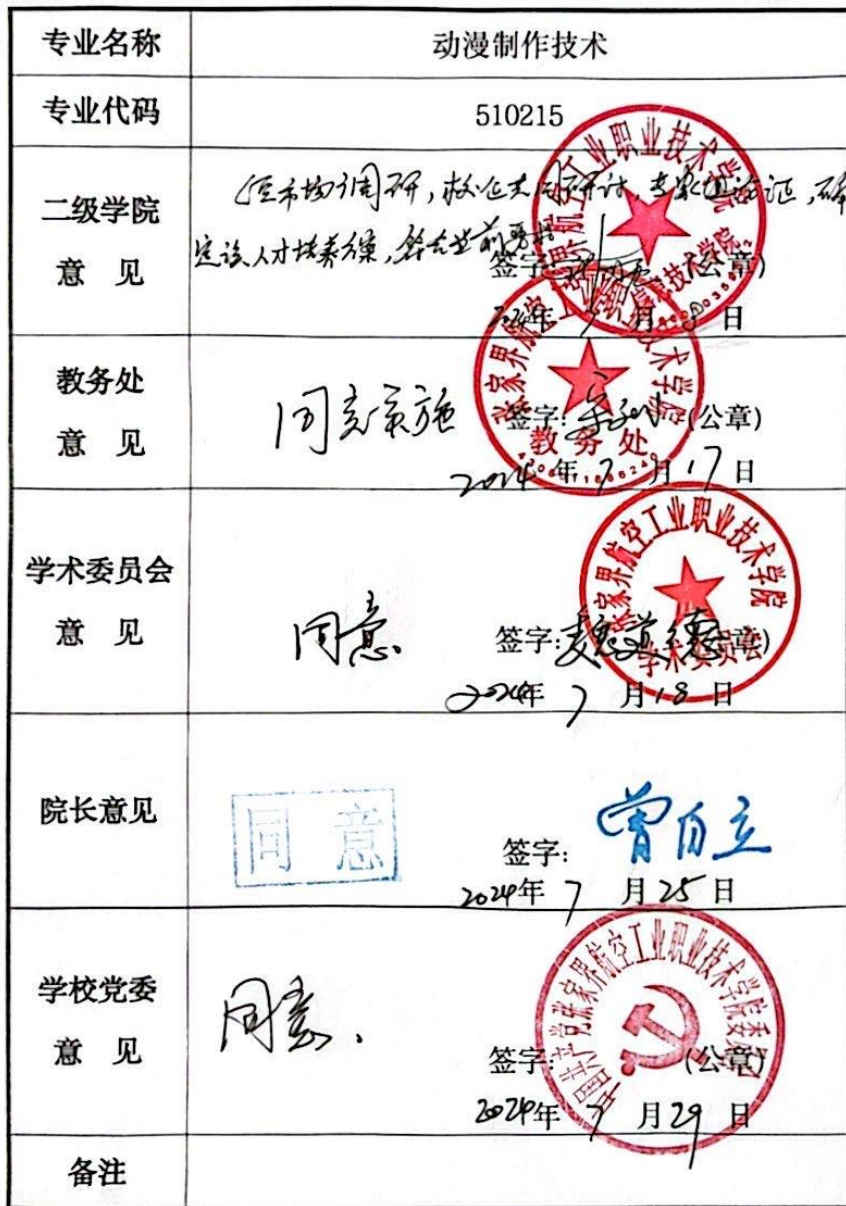 专业名称 动漫制作技术
专业代码 510215
二级学院 意 见
经市场调研,校企共同研讨,专家组论证,确
定该人才培养方案,符合当前
签字: (公章)
年 7 月 日
张家界航空工业职业技术学院
信息技术学院
教务处 意 见
同意实施
签字: (公章)
2024 年 7 月 17 日
张家界航空工业职业技术学院
教务处
学术委员会 意 见
同意.
签字: (公章)
2024年 7 月 18 日
张家界航空工业职业技术学院
学术委员会
院长意见
同 意
签字: 曾自立
2024年 7 月 25 日
学校党委 意 见
同意.
签字: (公章)
2024年 7 月 29 日
中国共产党张家界航空工业职业技术学院委员会
备注